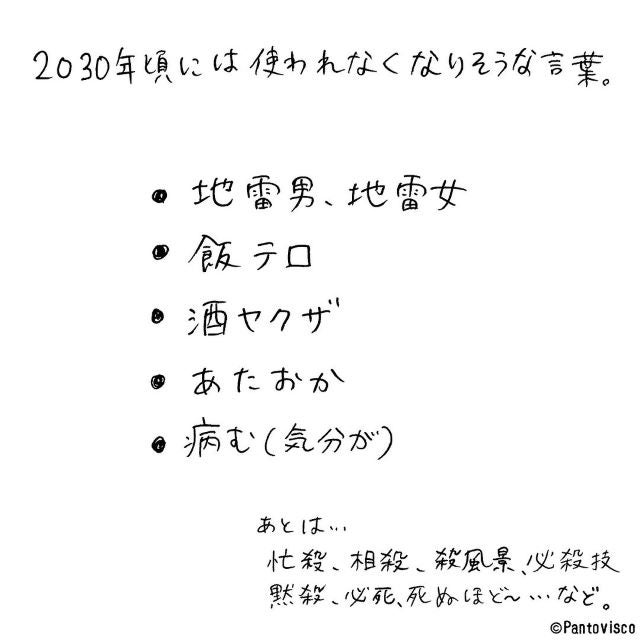 2030年頃には使われなくなりそうな言葉。
● 地雷男、地雷女
● 飯テロ
● 酒ヤクザ
● あたおか
● 病む(気分が)
あとは…
忙殺、相殺、殺風景、必殺技
黙殺、必死、死ぬほど〜…など。
©Pantovisco